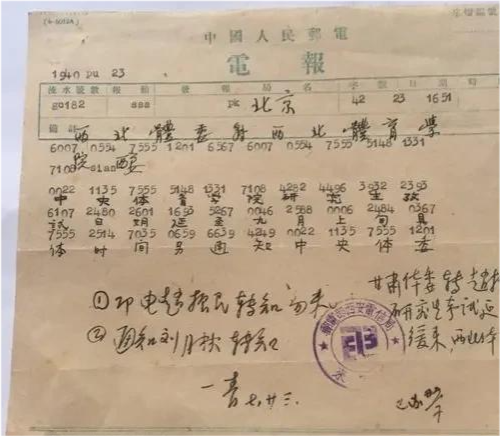 [A-5002A]
中國人民郵電
電報
1940 DU 23
流水號數 報類 發報局名 字數 日期
go182 sss pk 北京 42 23 1651
備註
西北體委 西北體育學
6007 0554 7555 1201 6567 6007 0554 7555 5148 1331
院 西安
7108 sian
0022 1135 7555 5148 1331 7108 4282 4496 3932 2393
中央体育学院研究生攷
6107 2480 2601 1693 5267 0046 2588 0006 2484 0367
試日期延至九月上旬具
7555 2514 7035 0659 6639 4249 0022 1135 7555 1201
体时间另通知中央体委
①印电赵振民转知勿来
②通知刘月秋转知
甘肃体委转赵
研究生考试延
缓来,西北体
七.廿三.